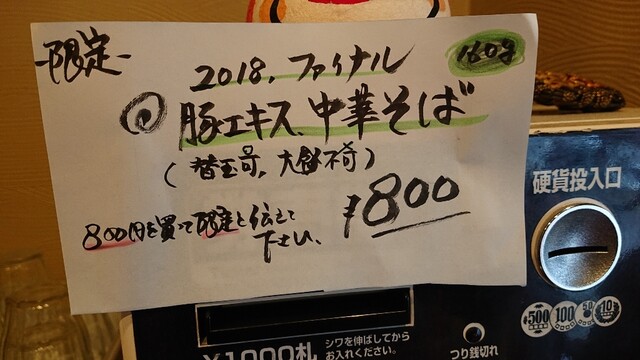 -限定-
2018.ファイナル
160g
豚エキス.中華そば
(替玉可,大盛不可)
¥800
800円を買って限定と伝えて
下さい、
硬貨投入口
500 100 50 10
¥1000札
シワを伸ばしてから
お入れください。
つり銭切れ